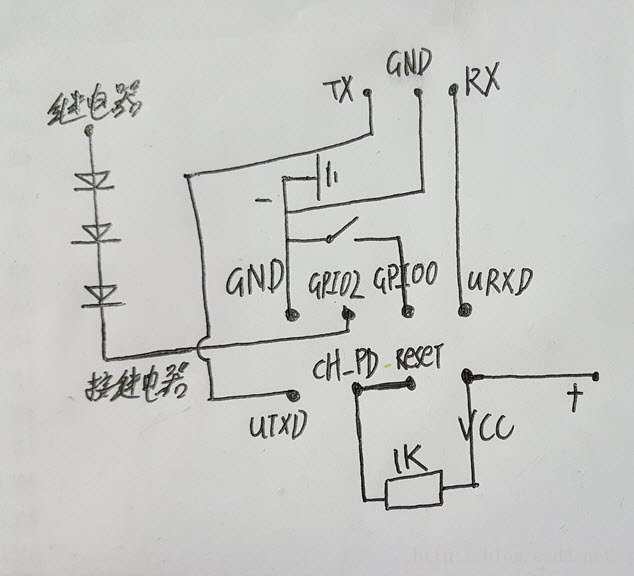 GND
TX
RX
继电器
GND
GPIO2
GPIO0
URXD
CH_PD
RESET
接继电器
+
VCC
UTXD
1K
http://blog.csdn.net/